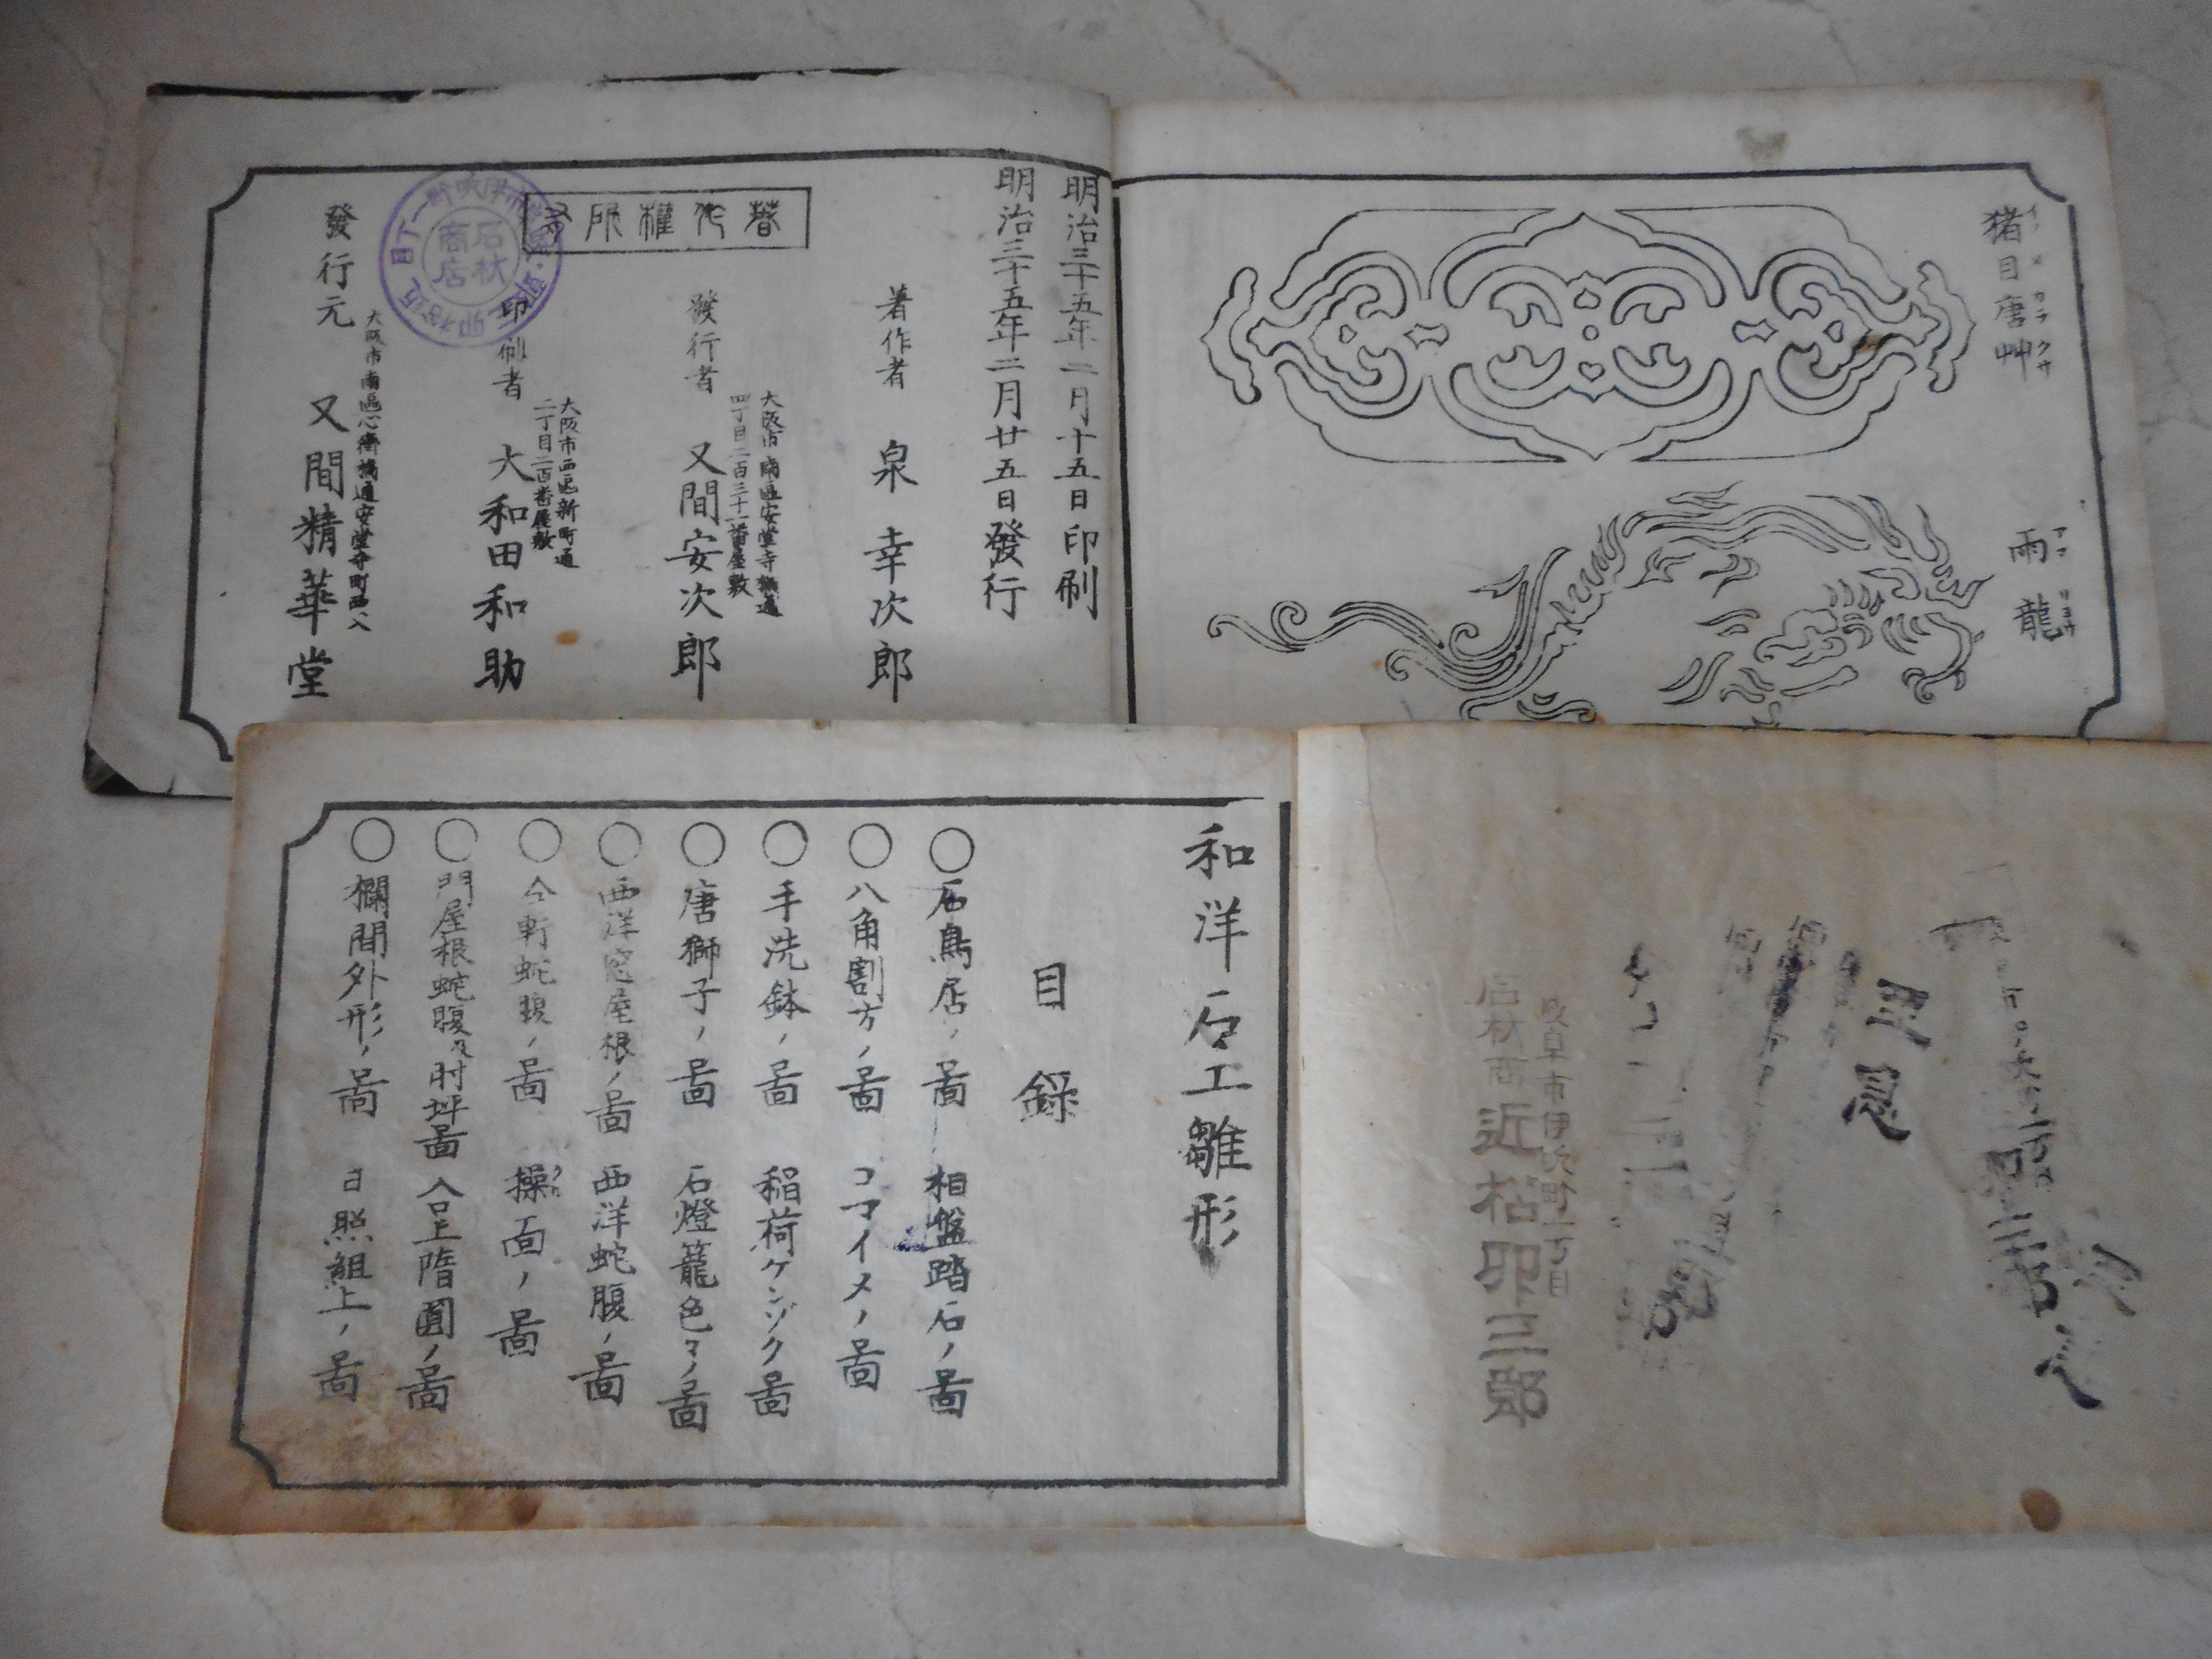 猪目唐艸
イノメカラクサ
雨龍
アマリヨウ
明治三十五年二月十五日印刷
明治三十五年二月廿五日發行
著作權所有
著作者 泉幸次郎
大阪市南區安堂寺橋通
四丁目二百三十一番屋敷
發行者 又間安次郎
大阪市西區新町通
二丁目二百番屋敷
印刷者 大和田和助
大阪市南區心斎橋通安堂寺町西へ入
發行元 又間精華堂
石材
商店
和洋石工雛形
目錄
○石鳥居ノ啚 相盤踏石ノ啚
○八角割方ノ啚 コマイメノ啚
○手洗鉢ノ啚 稲荷ケンゾク啚
○唐獅子ノ啚 石燈籠色々ノ啚
○西洋窓屋根ノ啚 西洋蛇腹ノ啚
○仝軒蛇腹ノ啚 操面ノ啚
○門屋根蛇腹及肘坪啚 入呈隋圓ノ啚
○欄間外形ノ啚 日照組上ノ啚
岐阜市伊吹町一丁目
石材商 近松卯三郎